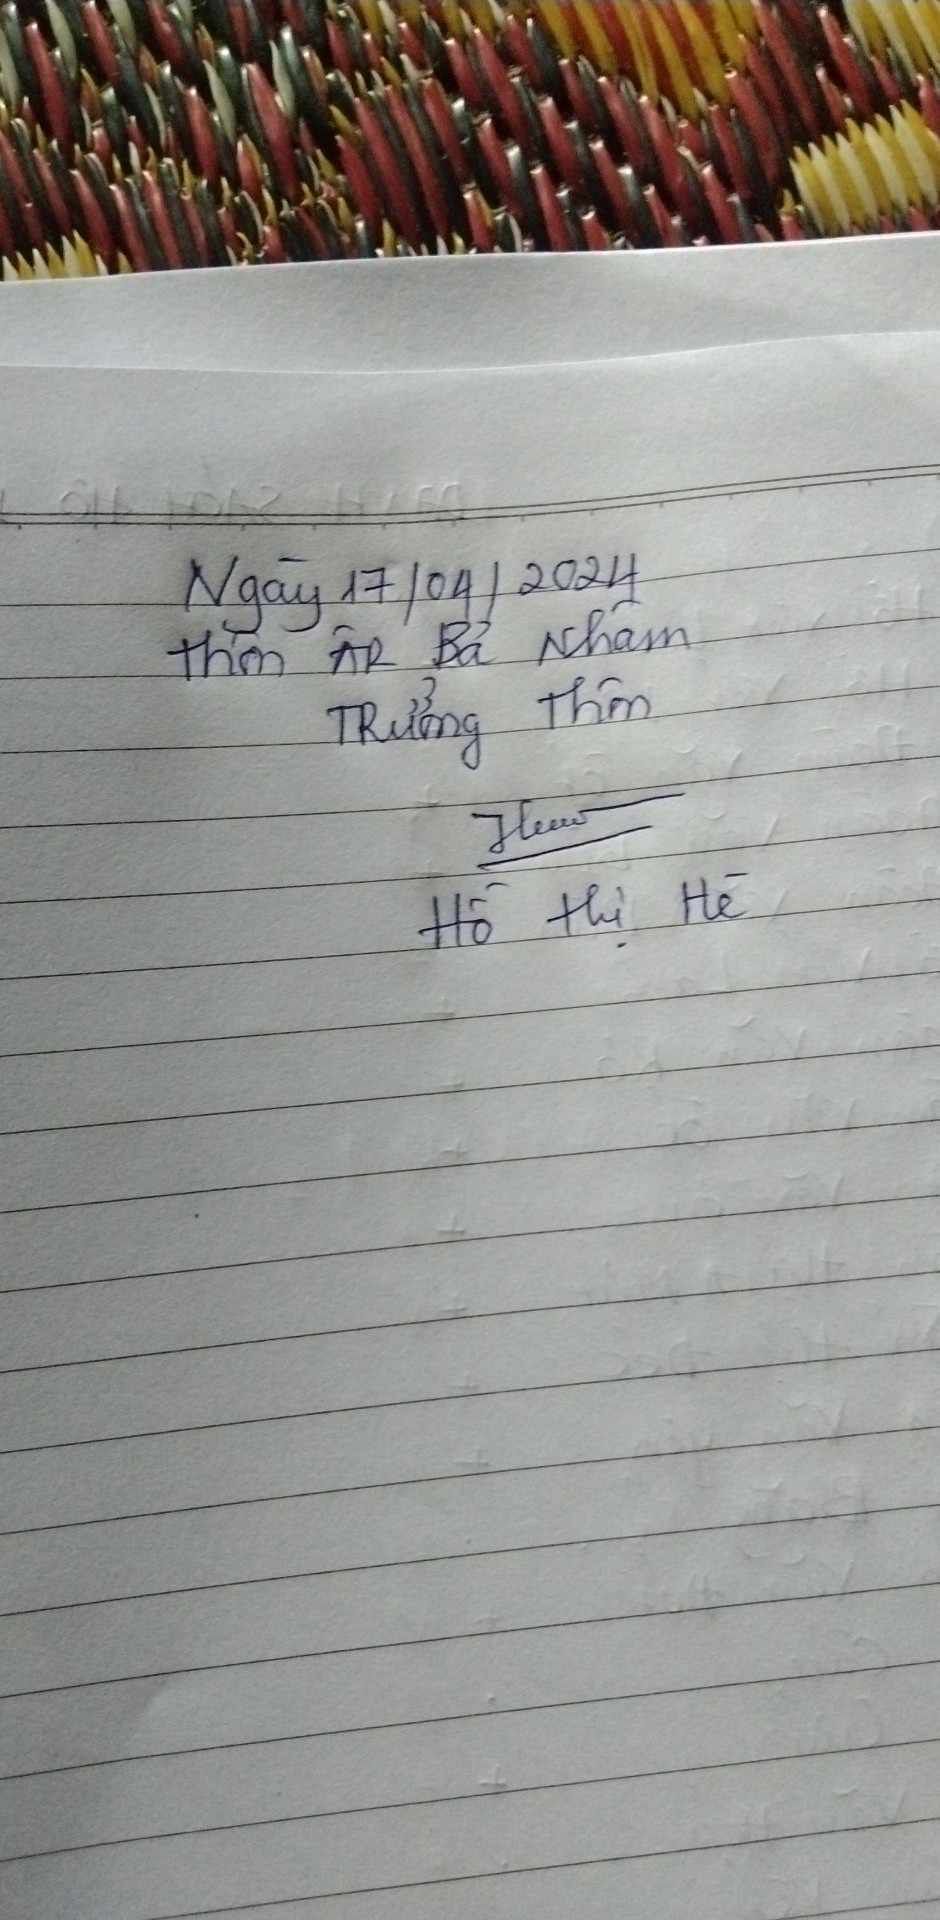 Ngày 17/04/2024
thôn ÂR Bả Nhâm
TRưởng Thôn
Hồ thị Hè